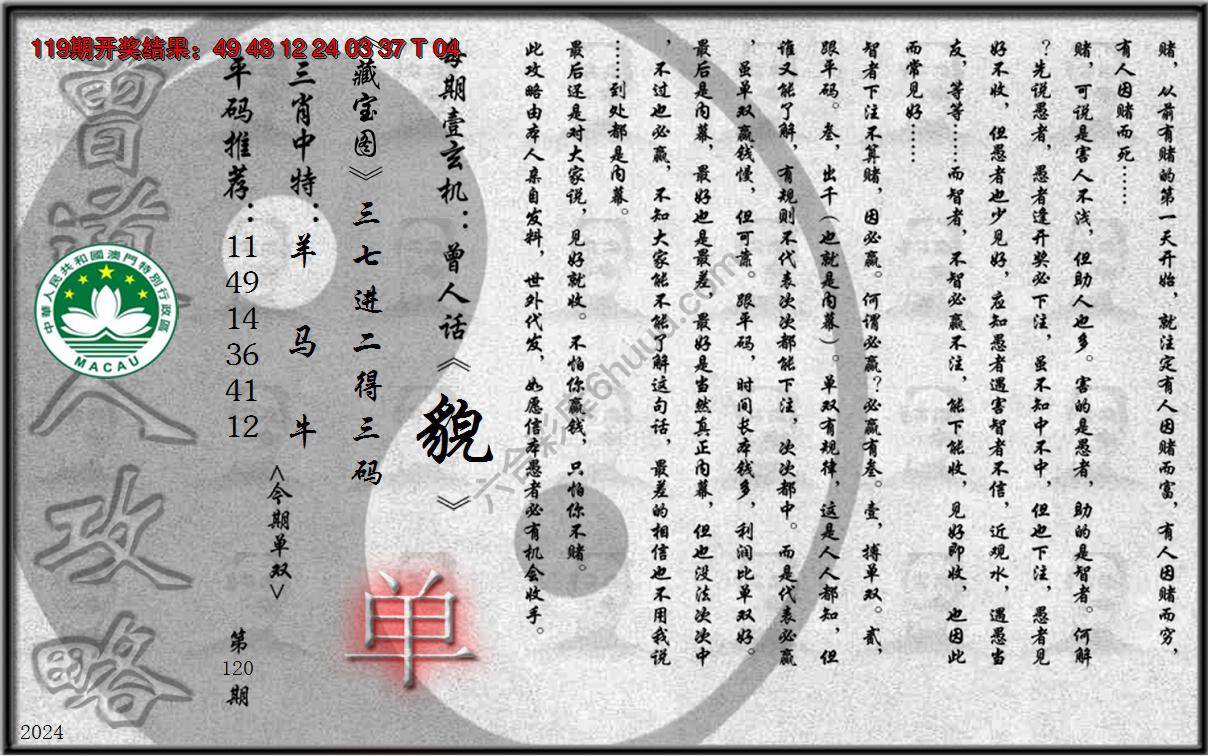 119期开奖结果：49 48 12 24 03 37 T 04
赌，从前有赌的第一天开始，就注定有人因赌而富，有人因赌而穷，
有人因赌而死……
赌，可说是害人不浅，但助人也多。害的是愚者，助的是智者。何解
？先说愚者，愚者逢开奖必下注，虽不知中不中，但也下注，愚者见
好不收，但愚者也少见好，应知愚者遇害智者不信，近观水，遇愚当
友，等等……而智者，不智必赢不注，能下能收，见好即收，也因此
而常见好……
智者下注不算赌，因必赢。何谓必赢？必赢有叁。壹，搏单双。贰，
跟平码。叁，出千（也就是内幕）。单双有规律，这是人人都知，但
谁又能了解，有规则不代表次次都能下注，次次都中。而是代表必赢
，虽单双赢钱慢，但可靠。跟平码，时间长本钱多，利润比单双好。
最后是内幕，最好也是最差，最好是当然真正内幕，但也没法次次中
，不过也必赢，不知大家能不能了解这句话，最差的相信也不用我说
……到处都是内幕。
最后还是对大家说，见好就收。不怕你赢钱，只怕你不赌。
此攻略由本人亲自发料，世外代发，如愿信本愚者必有机会收手。
每期壹玄机：曾人话《貌》
《藏宝图》三七进二得三码
三肖中特：羊 马 牛
平码推荐：11 49 14 36 41 12
<今期单双>
单
第120期
曾道人攻略
中華人民共和國澳門特別行政區
MACAU
六合彩库6huuu.com
2024